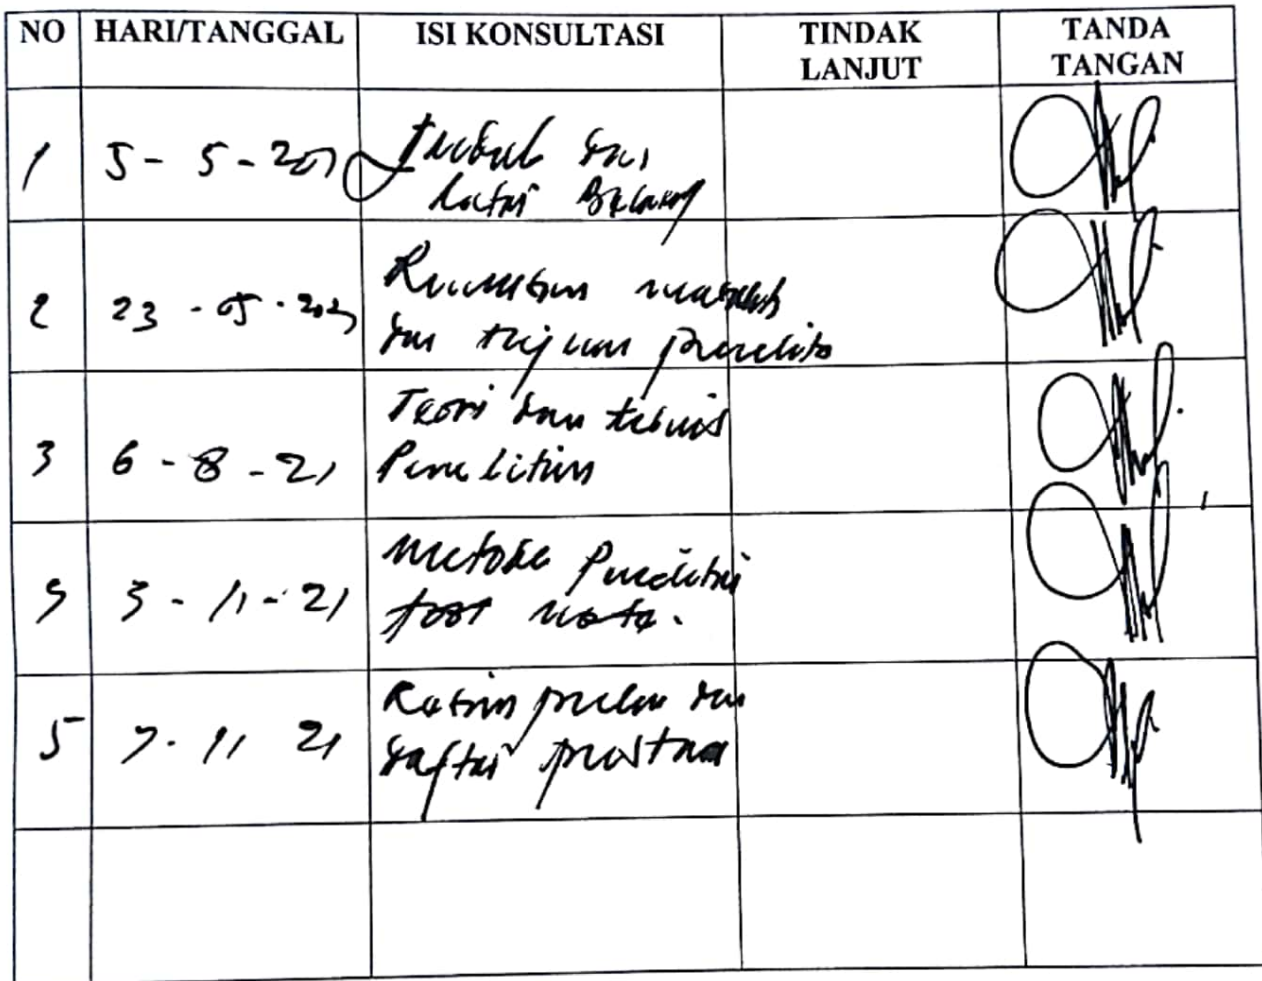 NO HARI/TANGGAL ISI KONSULTASI TINDAK LANJUT TANDA TANGAN
1 5 - 5 - 2021 Judul dan
latar Belakang
2 23 - 05 - 2021 Rumusan masalah
dan tujuan penelitia
3 6 - 8 - 21 Teori dan teknis
Penelitian
3 - 11 - 21 Metode Penelitian
foot note.
5 7 - 11 21 dan
daftar pustaka